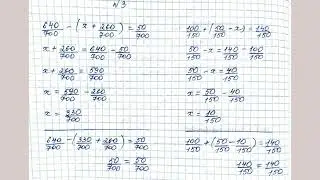 №3
640/700 - (x + 260/700) = 50/700
x + 260/700 = 640/700 - 50/700
x + 260/700 = 590/700
x = 590/700 - 260/700
x = 330/700
640/700 - (330/700 + 260/700) = 50/700
50/700 = 50/700
100/150 + (50/150 - x) = 140/150
50/150 - x = 140/150 - 100/150
50/150 - x = 40/150
x = 50/150 - 40/150
x = 10/150
100/150 + (50/150 - 10/150) = 140/150
140/150 = 140/150